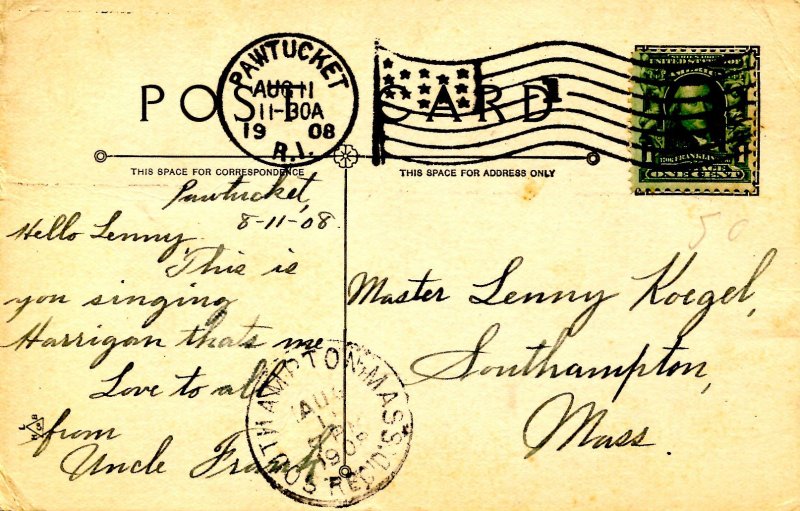 PAWTUCKET
AUG 11
11-30A
1908
R.I.
POST CARD
1
THIS SPACE FOR CORRESPONDENCE
THIS SPACE FOR ADDRESS ONLY
Pawtucket,
8-11-08.
Hello Lenny
This is
you singing
Harrigan thats me
Love to all
from
Uncle Frank
Master Lenny Koegel,
Southampton,
Mass.
50
FRANKLIN
ONE CENT
HAMPTON, MASS.
AUG
1908
REC'D.